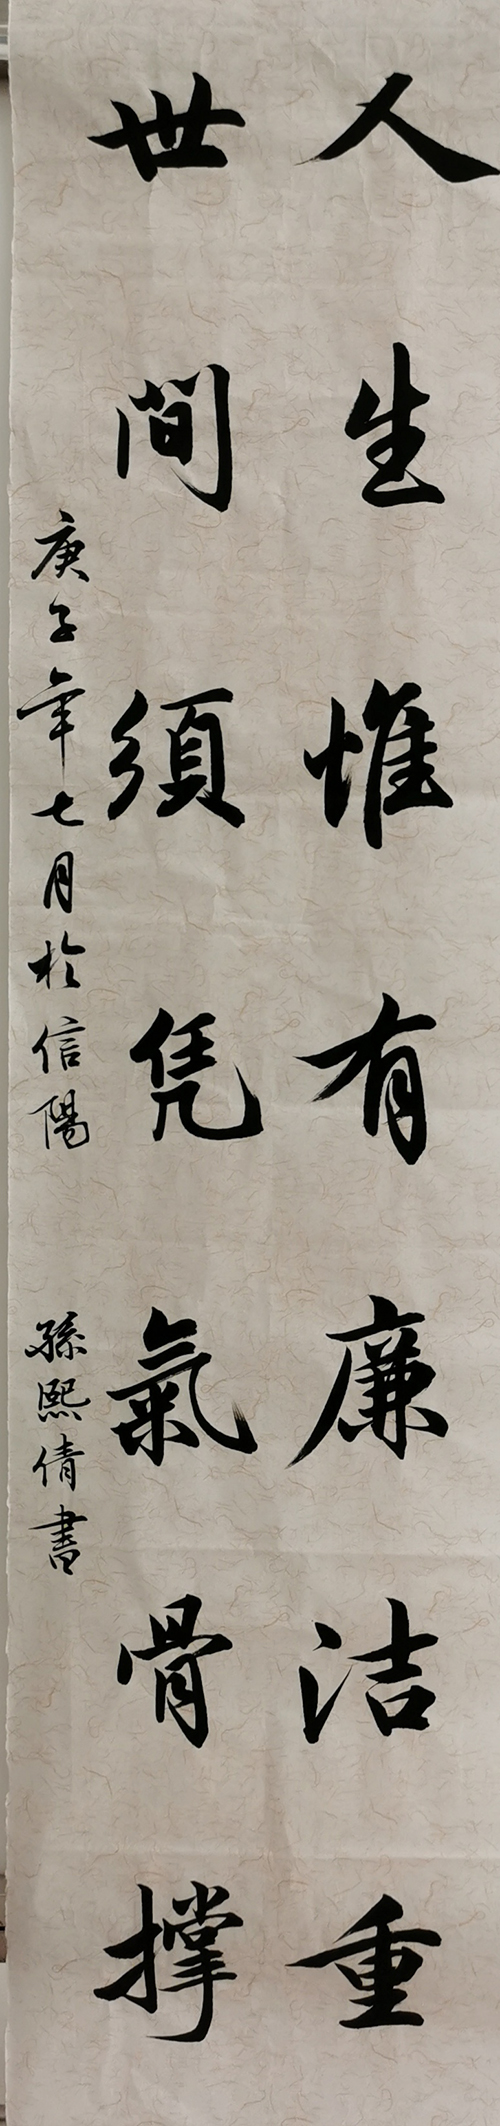 人生惟有廉洁重
世間須凭氣骨撑
庚子年七月於信陽 孫熙倩書